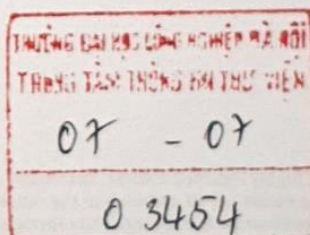 TRƯỜNG ĐẠI HỌC CÔNG NGHIỆP HÀ NỘI
TRUNG TÂM THÔNG TIN THƯ VIỆN
07 - 07
03454